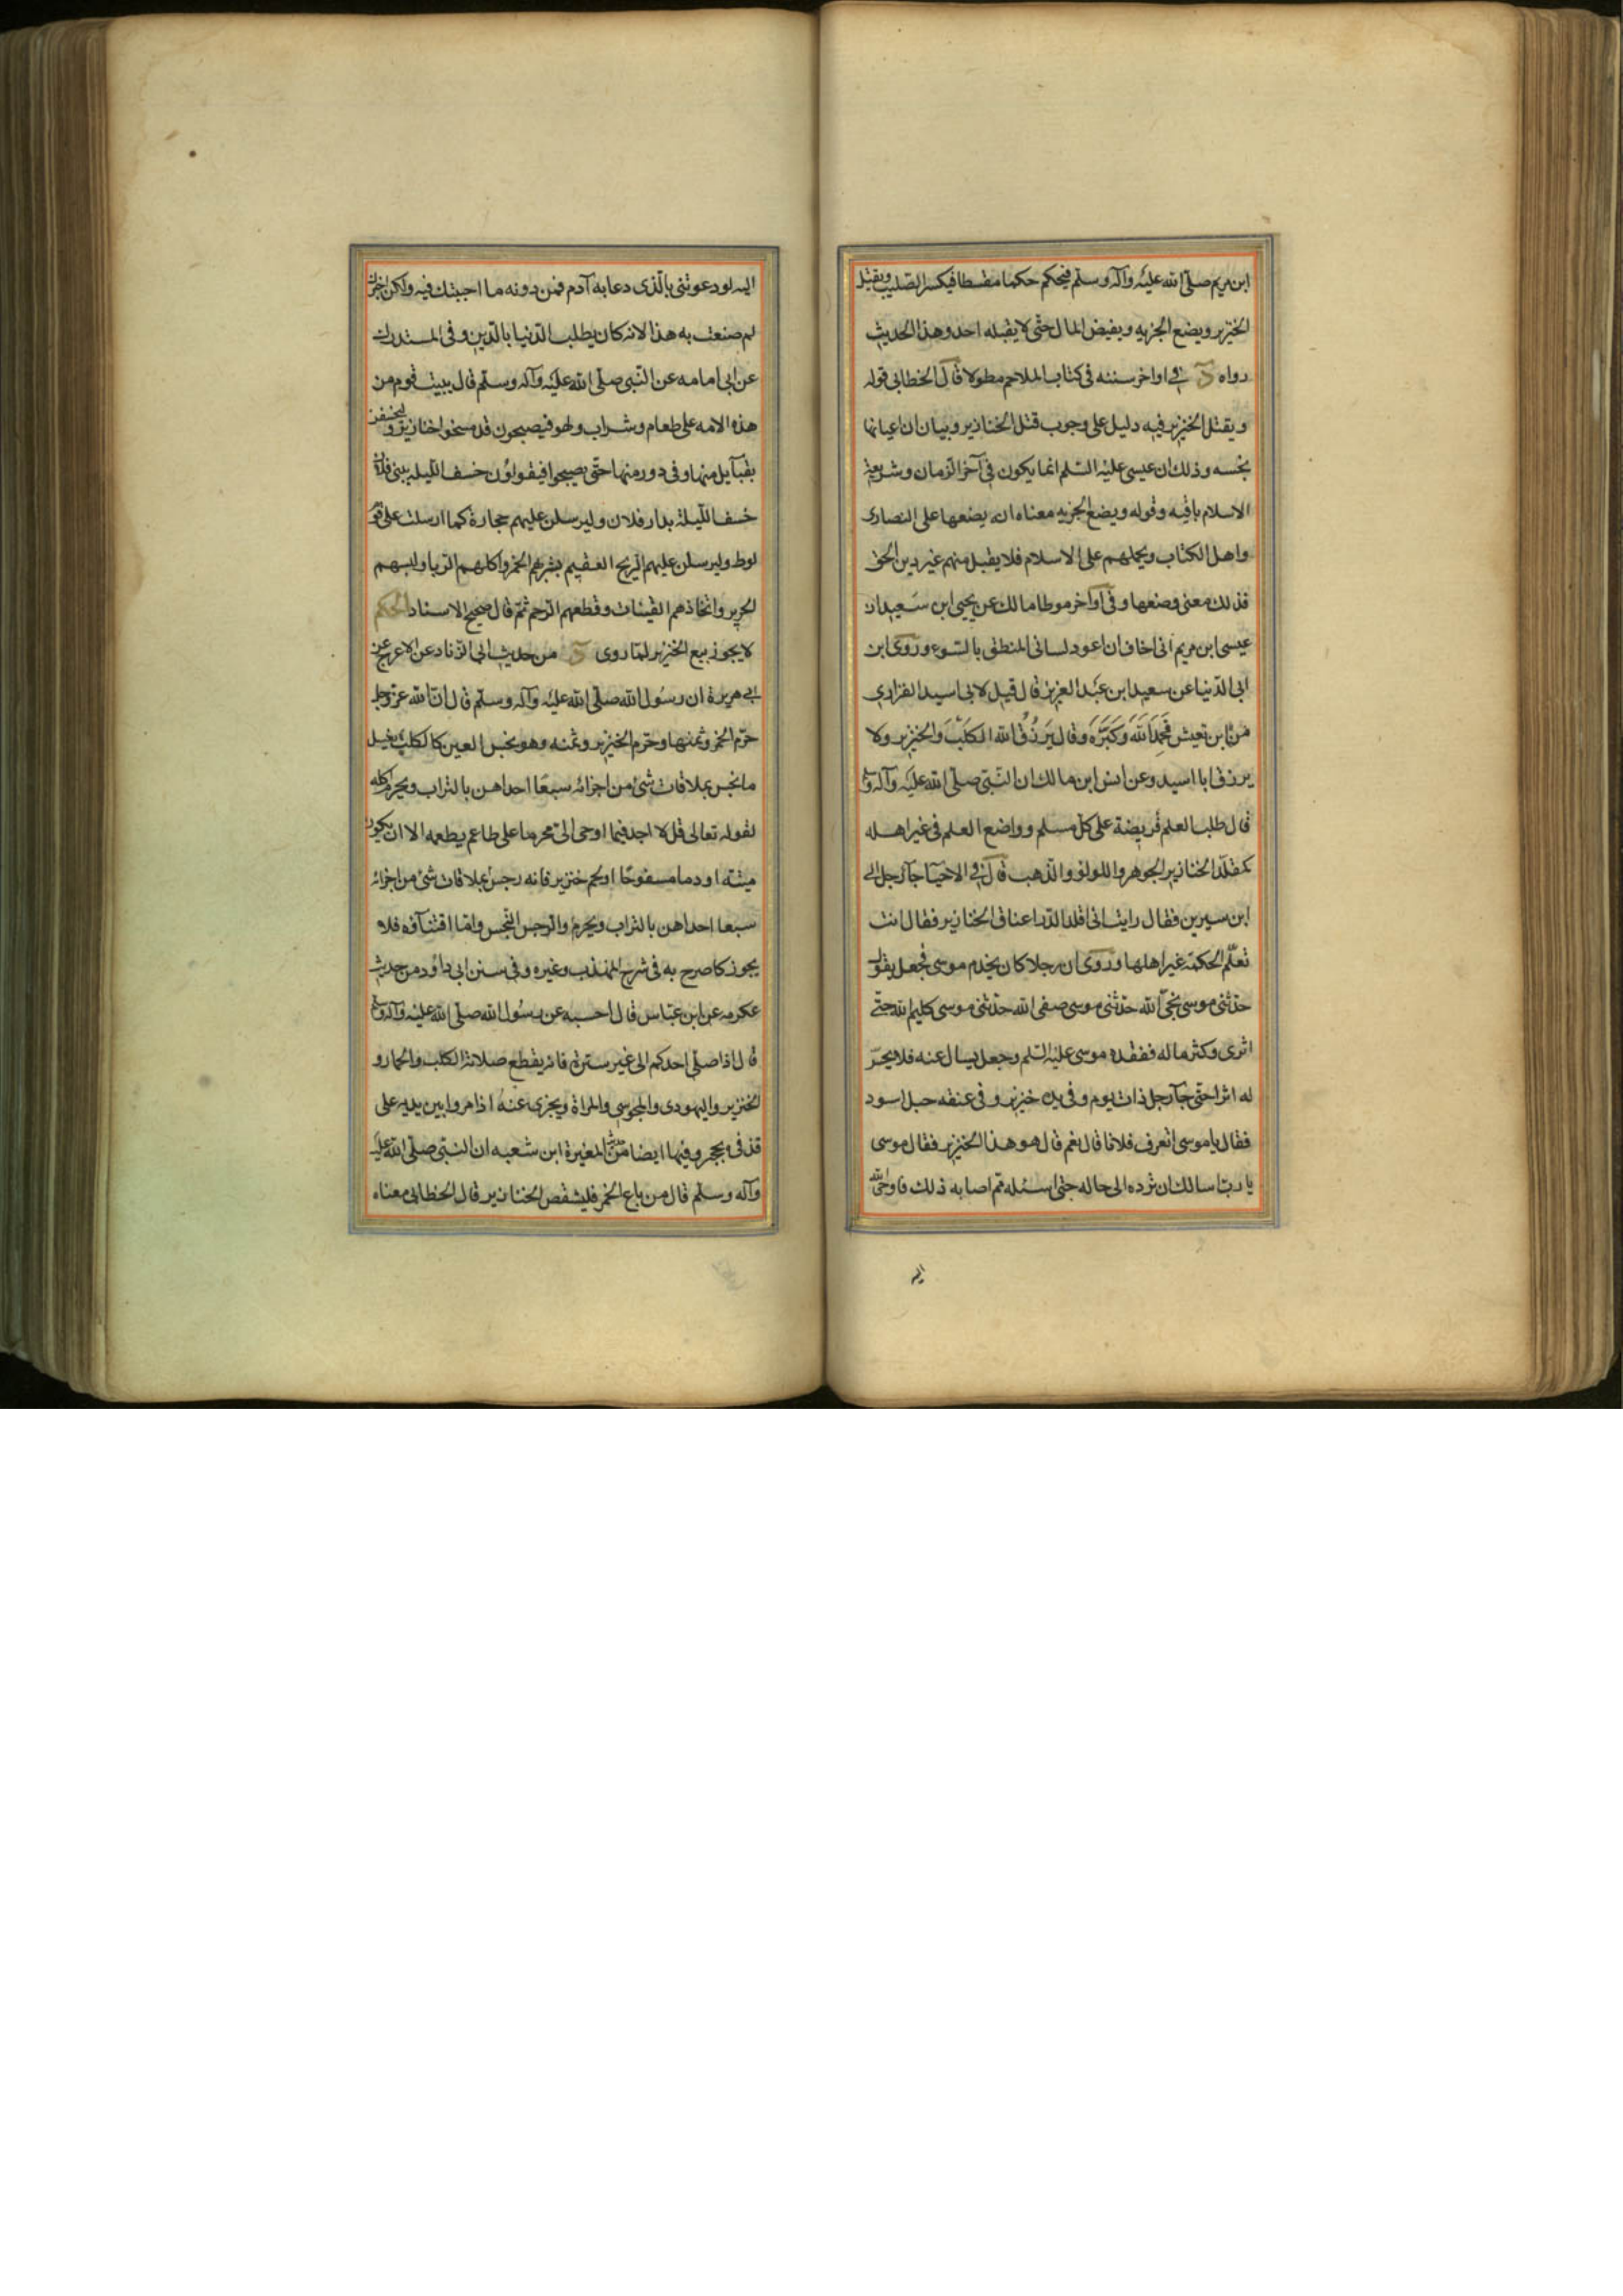 ابن مريم صلى الله عليه وآله وسلم فيحكم حكما مقسطا فيكسر الصليب ويقتل
الخنزير ويضع الجزيه ويفيض المال حتى لا يقبله احد وهذا الحديث
رواه د في اواخر سننه في كتاب الملاحم مطولا قال الخطابي قوله
ويقتل الخنزير فيه دليل على وجوب قتل الخنازير وبيان ان اعيانها
نجسه وذلك ان عيسى عليه السلم انما يكون في آخر الزمان وشريعة
الاسلام باقيه وقوله ويضع الجزيه معناه انه يضعها على النصارى
واهل الكتاب ويحملهم على الاسلام فلا يقبل منهم غير دين الحق
فذلك معنى وضعها وفي آواخر موطا مالك عن يحيى ابن سعيد ان
عيسى ابن مريم اني اخاف ان اعود لساني المنطق بالسوء وروى ابن
ابي الدنيا عن سعيد ابن عبد العزيز قال قيل لابي اسيد الفزاري
من اين تعيش فحمد الله وكبره وقال يرزق الله الكلب والخنزير ولا
يرزق ابا اسيد وعن انس ابن مالك ان النبي صلى الله عليه وآله وسلم
قال طلب العلم فريضة على كل مسلم وواضع العلم في غير اهله
كمقلد الخنازير الجوهر واللولؤ والذهب قال في الاحيآ جآ رجل الى
ابن سيرين فقال رايت اني اقلد الدر اعناق الخنازير فقال انت
تعلم الحكمة غير اهلها وروى ان رجلا كان يخدم موسى فجعل يقول
حدثني موسى نجي الله حدثني موسى صفى الله حدثني موسى كليم الله حتى
اثرى وكثر ماله ففقده موسى عليه السلم وجعل يسال عنه فلا يحس
له اثرا حتى جآ رجل ذات يوم وفي يده خنزير وفي عنقه حبل اسود
فقال يا موسى اتعرف فلانا قال نعم قال هو هذا الخنزير فقال موسى
يا رب اسالك ان ترده الى حاله حتى اسئله بم اصابه ذلك فاوحى الله
اليه
اليه لو دعوتني بالذي دعا به آدم فمن دونه ما اجبتك فيه ولكن اخبرك
لم صنعت به هذا لانه كان يطلب الدنيا بالدين وفي المستدرك
عن ابي امامه عن النبي صلى الله عليه وآله وسلم قال يبيت قوم من
هذه الامه على طعام وشراب ولهو فيصبحون قد مسخوا خنازير وليخسفن
بقبآيل منها وفي دور منها حتى يصبحوا فيقولون خسف الليله ببني فلان
خسف الليلة بدار فلان وليرسلن عليهم حجارة كما ارسلت على قوم
لوط وليرسلن عليهم الريح العقيم بشربهم الخمر واكلهم الربا ولبسهم
الحرير واتخاذهم القينات وقطعهم الرحم ثم قال صحيح الاسناد الحكم
لا يجوز بيع الخنزير لما روى د من حديث ابي الزناد عن الاعرج عن
ابي هريرة ان رسول الله صلى الله عليه وآله وسلم قال ان الله عز وجل
حرم الخمر وثمنها وحرم الخنزير وثمنه وهو نجس العين كالكلب يغسل
ما نجس بملاقات شئ من اجزائه سبعا احداهن بالتراب ويحرم اكله
لقوله تعالى قل لا اجد فيما اوحى الي محرما على طاعم يطعمه الا ان يكون
ميتة او دما مسفوحا او لحم خنزير فانه رجس بملاقات شئ من اجزائه
سبعا احداهن بالتراب ويحرم والرجس النجس واما اقتنآؤه فلا
يجوز كما صرح به في شرح المهذب وغيره وفي سنن ابي داود من حديث
عكرمه عن ابن عباس قال احسبه عن رسول الله صلى الله عليه وآله وسلم
قال اذا صلى احدكم الى غير سترة فانه يقطع صلاته الكلب والحمار و
الخنزير واليهودي والمجوسي والمراة ويجزى عنه اذا مروا بين يديه على
قذفة بحجر وفيها ايضا من حديث المغيرة ابن شعبه ان النبي صلى الله عليه
وآله وسلم قال من باع الخمر فليشقص الخنازير قال الخطابي معناه